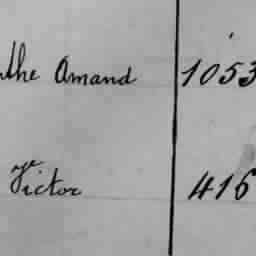 the Amand 1053
Victor 416